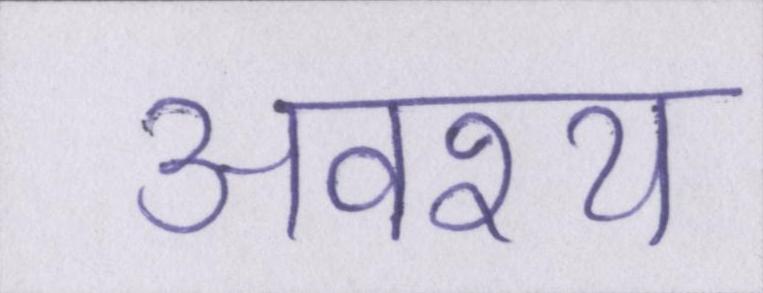 अवश्य